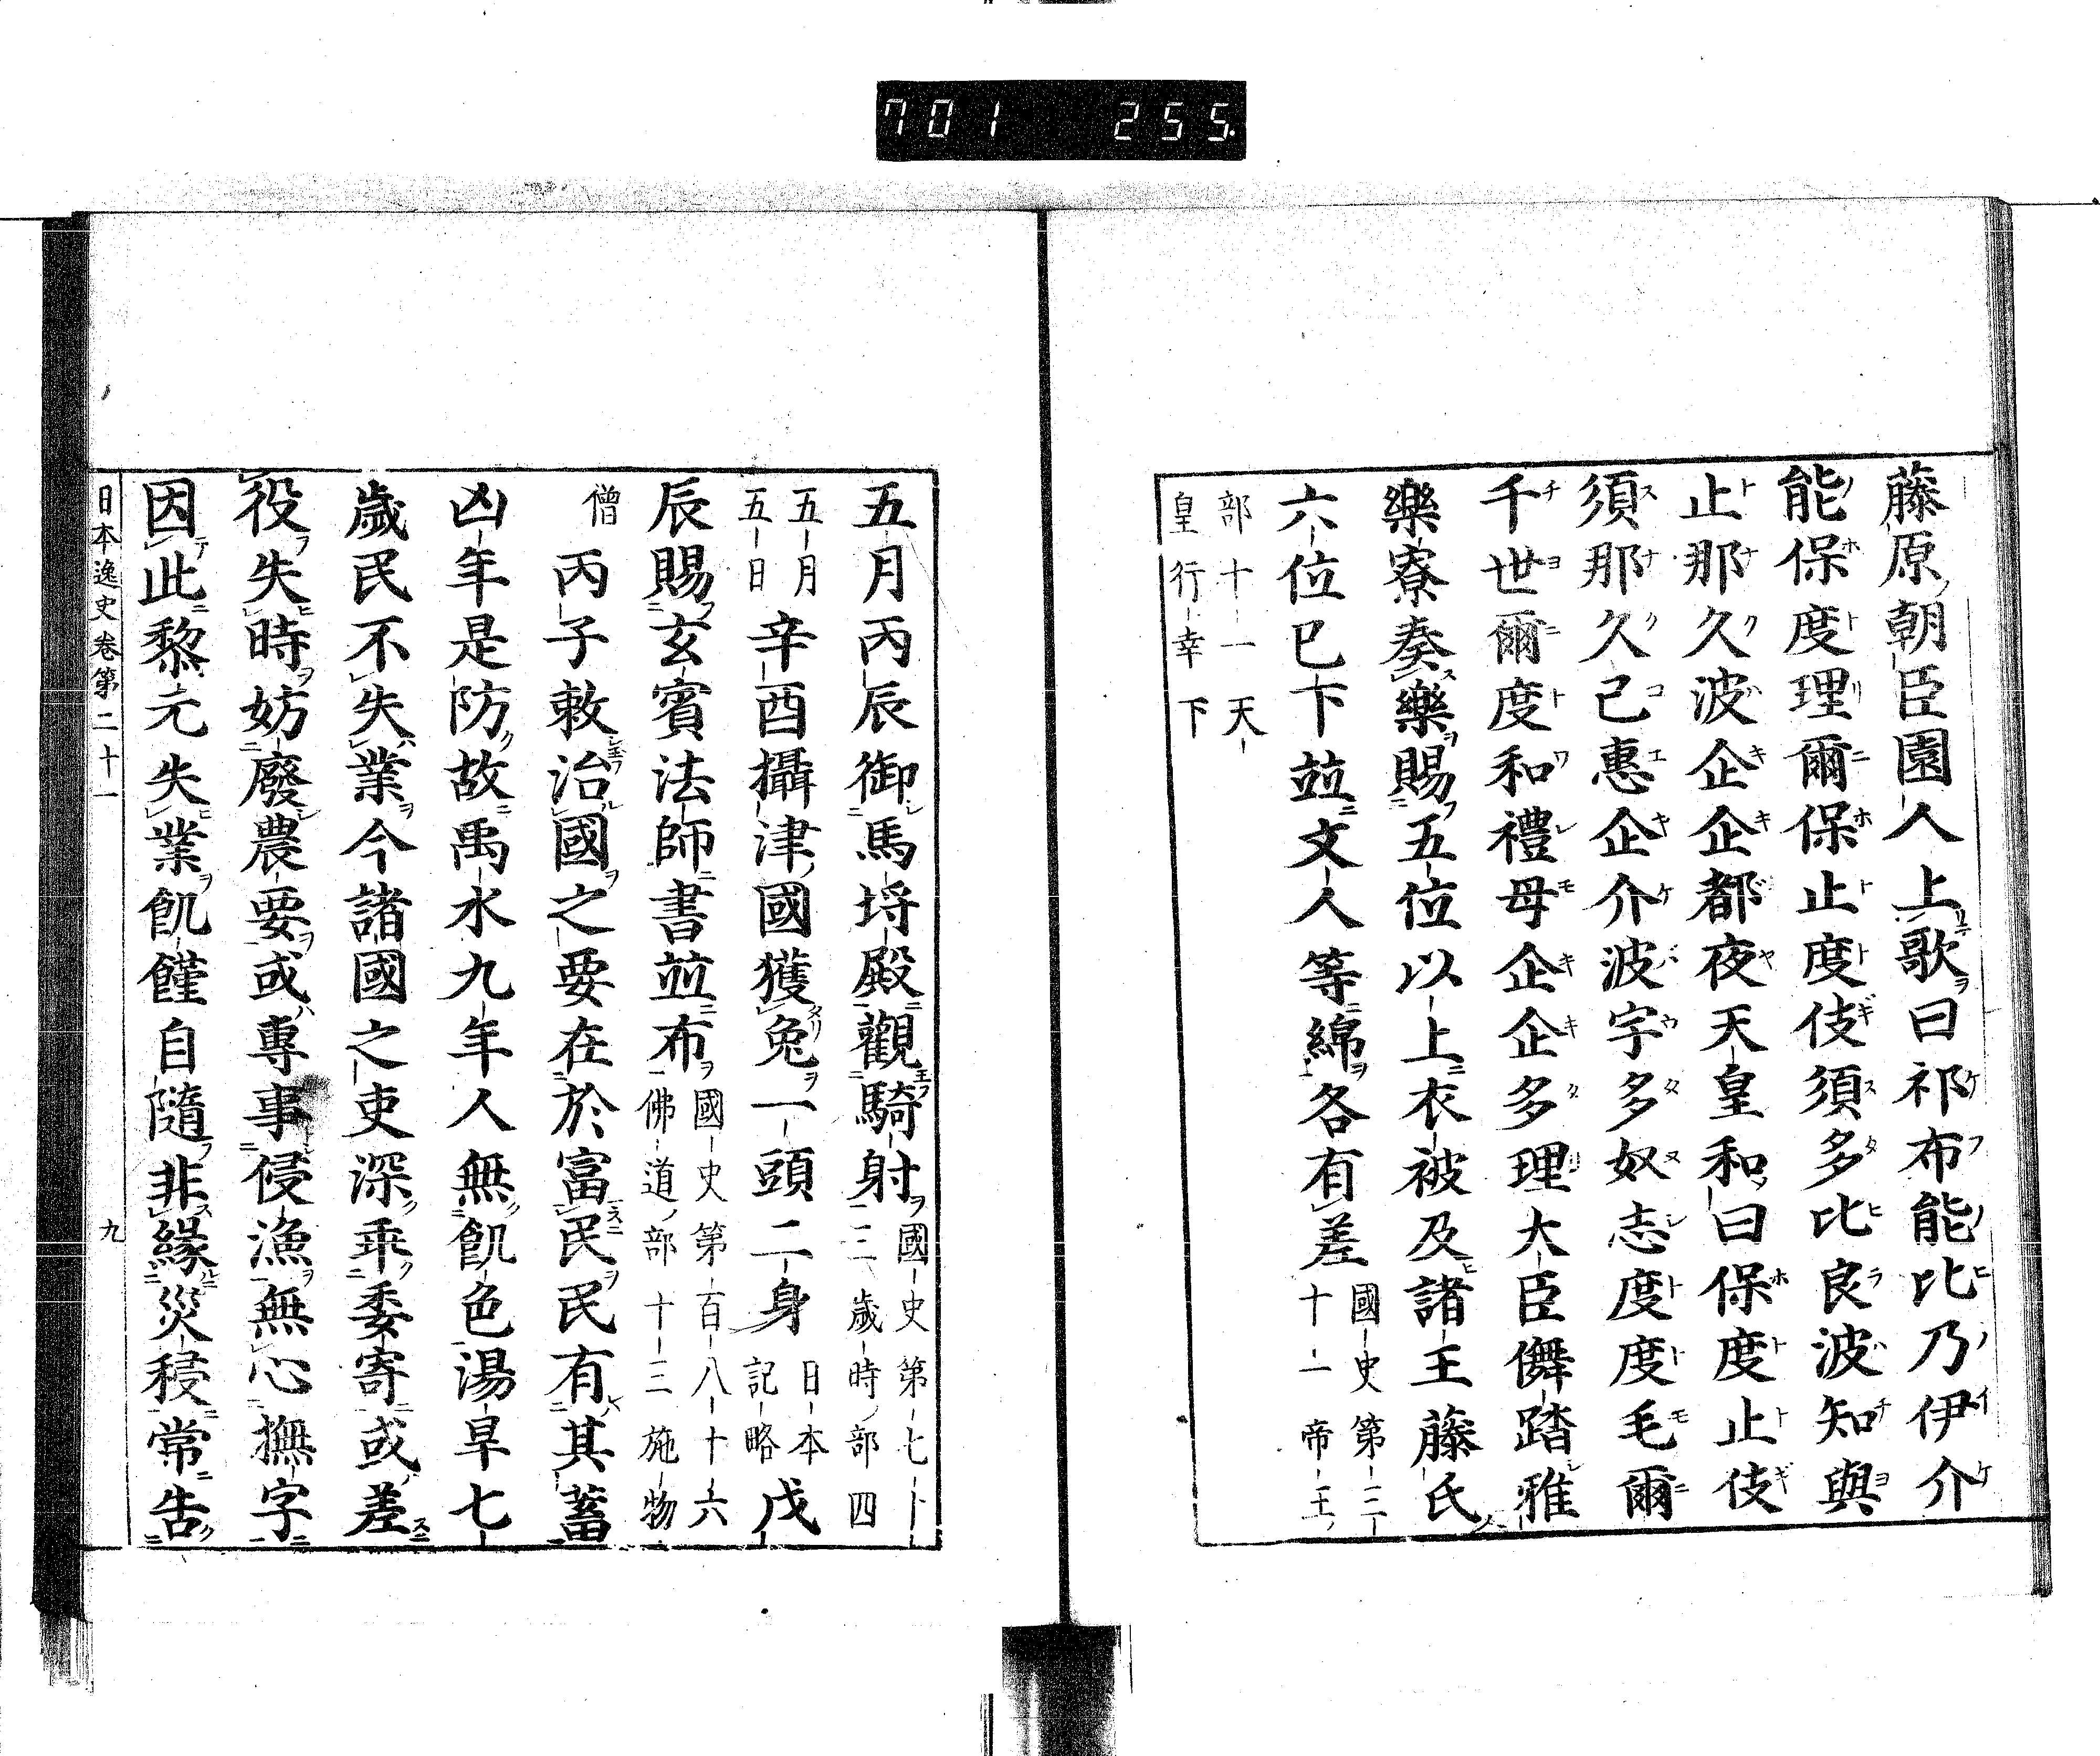 701 255
藤原朝臣園人上歌曰祁布能比乃伊介
能保度理爾保止度伎須多比良波知與
止那久波企企都夜天皇和曰保度止伎
須那久己惠企介波宇多奴志度度毛爾
千世爾度和禮母企企多理大臣儛踏雅
樂寮奏樂賜五位以上衣被及諸王藤氏
六位已下並文人等綿各有差國史第三十一帝王
部十一天皇行幸下
五月丙辰御馬埒殿觀騎射國史第七十三歲時部四
五月五日辛酉攝津國獲兔一頭二身日本記略戊
辰賜玄賓法師書並布國史第百八十六佛道部十三施物
僧丙子敕治國之要在於富民民有其蓄
凶年是防故禹水九年人無飢色湯旱七
歲民不失業今諸國之吏深乖委寄或差
役失時妨廢農要或專事侵漁無心撫字
因此黎元失業飢饉自隨非緣災祲常告
日本逸史卷第二十一 九